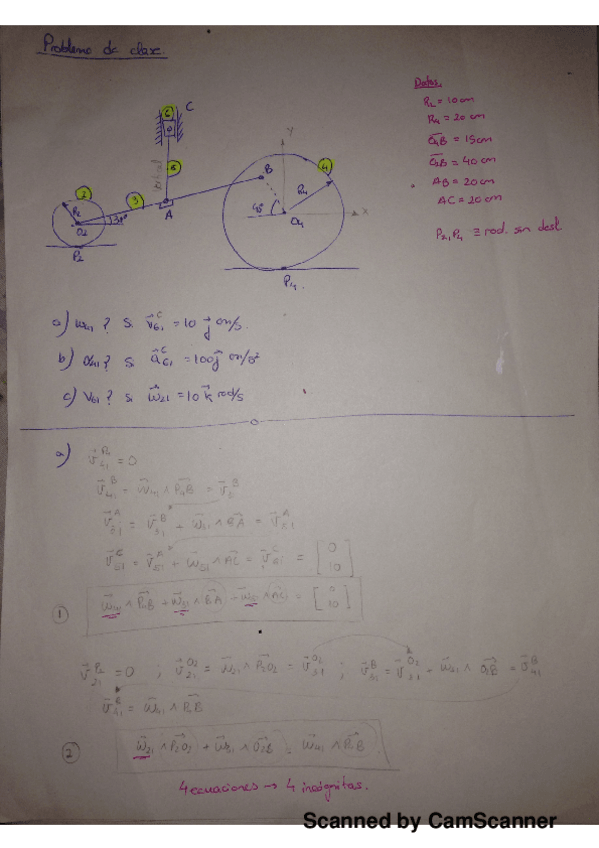 Problema de clase.
Datos.
R2 = 10 cm
R4 = 20 cm
O4B = 15 cm
O2B = 40 cm
AB = 20 cm
AC = 20 cm
P2, P4 ≡ rod. sin desl
C
6
5
vertical
Y
B
4
R4
2
3
R2
O2
30°
A
45°
O4
X
P2
P4
a) ω41 ? si v⃗61^C = 10 j⃗ cm/s.
b) α41 ? si a⃗61^C = 100 j⃗ cm/s²
c) V61 ? si ω⃗21 = 10 k⃗ rad/s
a) v⃗41^P4 = 0
v⃗41^B = ω⃗41 ∧ P4B = v⃗31^B
v⃗31^A = v⃗31^B + ω⃗31 ∧ BA = v⃗51^A
v⃗51^C = v⃗51^A + ω⃗51 ∧ AC = v⃗61^C = [0 10]
1 ω⃗41 ∧ P4B + ω⃗31 ∧ BA + ω⃗51 ∧ AC = [0 10]
v⃗21^P2 = 0 ; v⃗21^O2 = ω⃗21 ∧ P2O2 = v⃗31^O2 ; v⃗31^B = v⃗31^O2 + ω⃗31 ∧ O2B = v⃗41^B
v⃗41^B = ω⃗41 ∧ P4B
2 ω⃗21 ∧ P2O2 + ω⃗31 ∧ O2B = ω⃗41 ∧ P4B
4 ecuaciones → 4 incógnitas.
Scanned by CamScanner